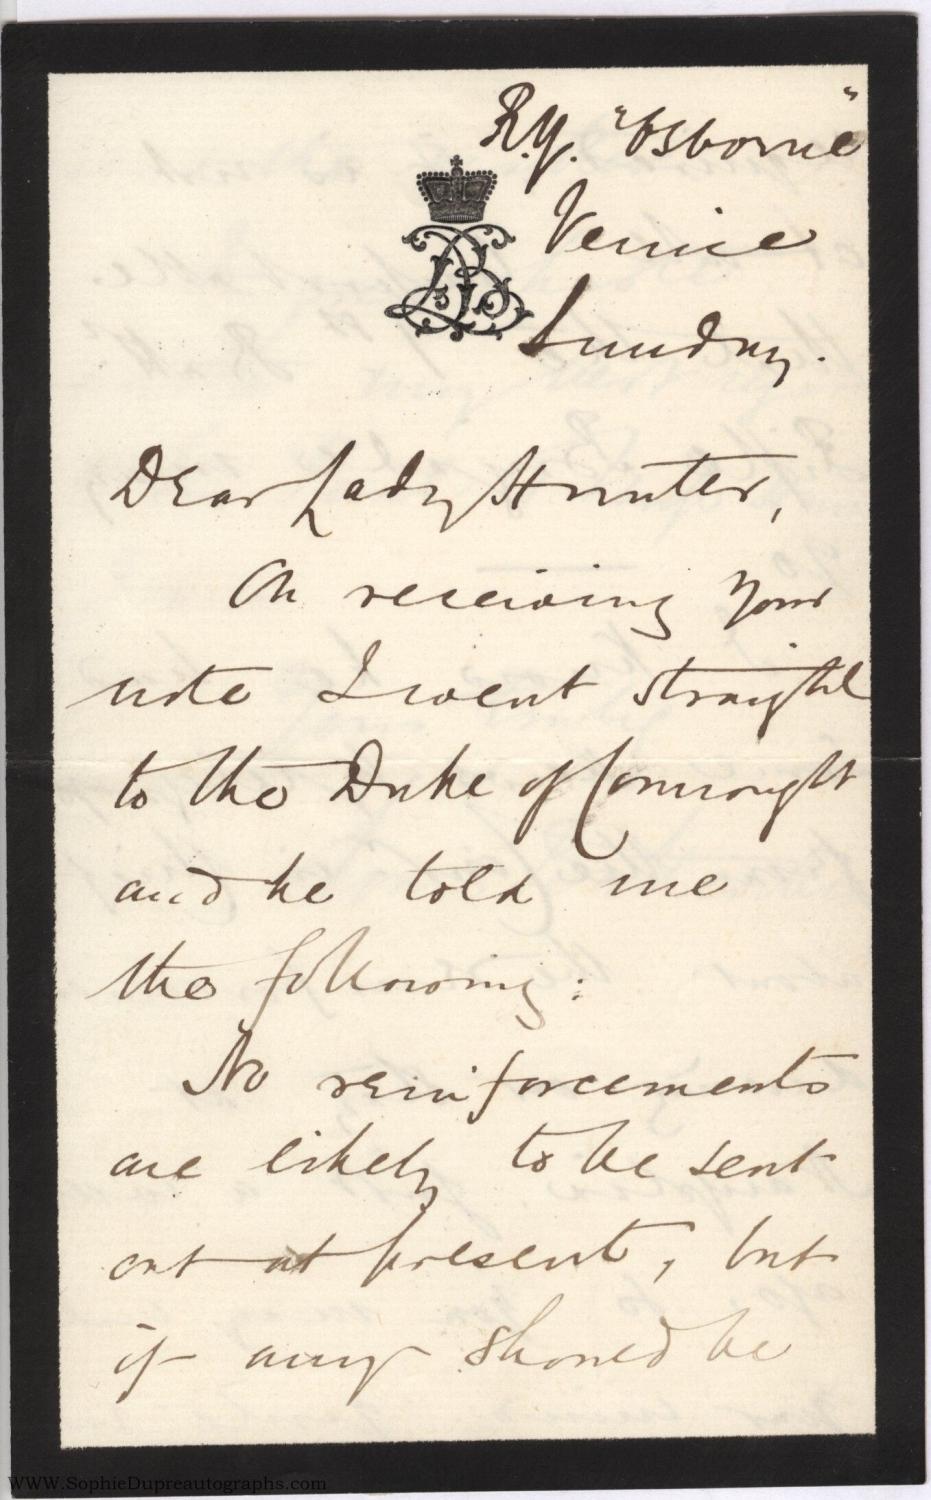 R.Y. "Osborne"
Venice
Sunday.
Dear Lady Hunter,
On receiving your
note I went straight
to the Duke of Connaught
and he told me
the following:
No reinforcements
are likely to be sent
out at present, but
if any should be
WWW.SophieDupreautographs.com